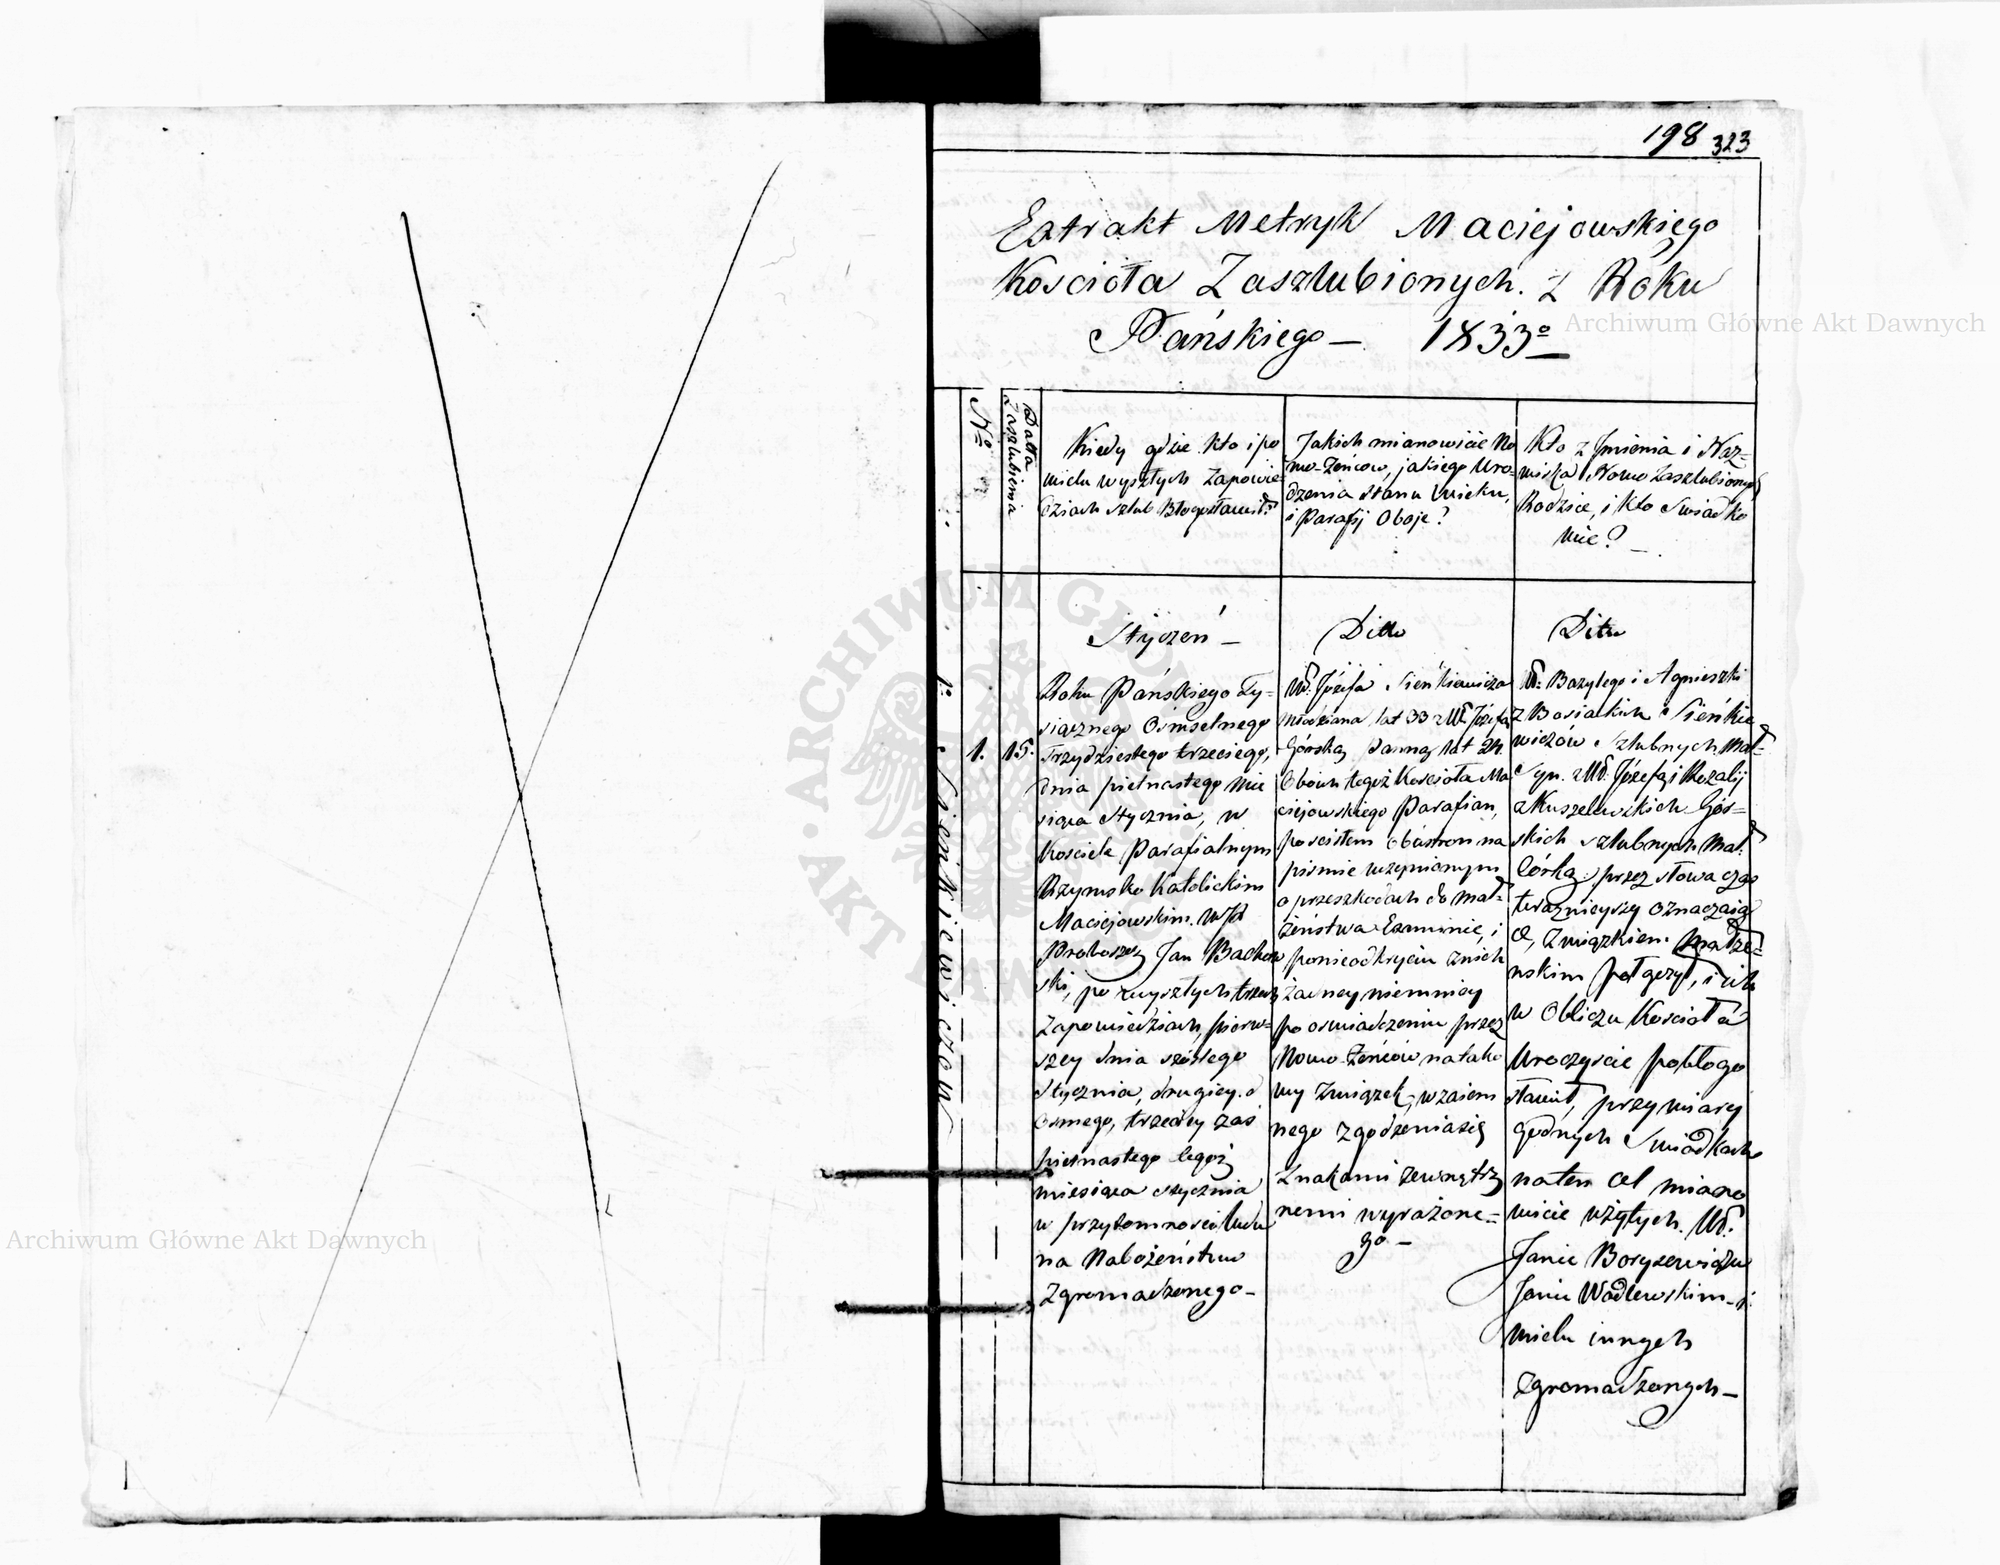 198 323
Extrakt Metryk Maciejowskiego
Kościoła Zaszlubionych. z Roku
Pańskiego — 1833º
Nº
Datta
Zaszlubienia
Kiedy gdzie kto i po
wielu wyszłych Zapowie-
dziach szlub Błogosławił?
Jakich mianowicie No
wo-Żeńców, jakiego Uro-
dzenia Stanu Wieku,
i Parafij Oboje?
Kto z Jmienia i Naz-
wiska Nowo Zaszlubionych
Rodzice, i Kto Swiadko
wie? —
1º Sieńkiewiczow
1.
15.
Styczeń —
Roku Pańskiego Ty-
siącznego Osmsetnego
Trzydziestego trzeciego,
dnia pietnastego Mie
siąca Stycznia, w
Kosciele Parafialnym
Rzymsko Katolickim
Maciejowskim.
Proboszcz Jan
ski, po wyszłych trzech
Zapowiedziach, pierw-
szey dnia szóstego
Stycznia, drugiey d
osmego, trzeciey zaś
pietnastego tegoż
miesiąca stycznia
w przytomności Ludu
na Nabożeństwo
Zgromadzonego —
Ditto
Józefa Sieńkiewicza
Młodziana lat 33 z Józefą
Górską Panną lat 24
Oboich tegoż Kościoła Ma
ciejowskiego Parafian,
po scisłem obustron na
pismie uczynionym
o przeszkodach do Mał-
żeństwa Examinie, i
ponieodkryciu znich
żadney niemniey
po oswiadczeniu przez
Nowo-Żeńców natako
wy Związek, wzaiem
nego zgodzenia się
Znakami zewnętrz
nemi wyrażone=
go —
Ditto
Bazylego i Agnieszki
z Sieńkie
wiczow Szlubnych Małż
Syn. z Józefą i Rozalij
z Kuszelewskich Gór-
skich szlubnych Małż
Córką; przez słowa czas
teraznieyszy oznaczają
ce, Związkiem Małże-
nskim połączył, i ich
w Obliczu Kościoła
Uroczyscie pobłogo
sławił, przy wiary
godnych Swiadkach
naten cel miano
wicie użytych.
Janie Boryszewiczu
Janie Wodlewskim — i
wielu innych
Zgromadzonych —
ARCHIWUM GŁÓWNE AKT DAWNYCH
Archiwum Główne Akt Dawnych
Archiwum Główne Akt Dawnych